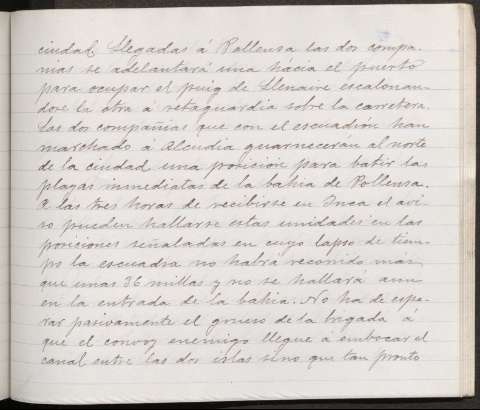 ciudad. Llegadas á Pollensa las dos compa-
ñias se adelantará una hácia el puerto
para ocupar el puig de Llenaire escalonan-
dose la otra á retaguardia sobre la carretera.
Las dos compañias que con el escuadrón han
marchado á Alcudia guarneceran al norte
de la ciudad una posición para batir las
playas inmediatas de la bahia de Pollensa.
A las tres horas de recibirse en Inca el avi-
so pueden hallarse estas unidades en las
posiciones señaladas en cuyo lapso de tiem-
po la escuadra no habrá recorrido mas
que unas 36 millas y no se hallará aun
en la entrada de la bahia. No ha de espe-
rar pasivamente el grueso de la brigada á
que el convoy enemigo llegue á embocar el
canal entre las dos islas sino que tan pronto